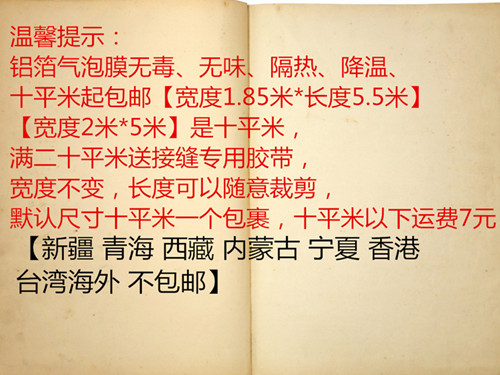 温馨提示：
铝箔气泡膜无毒、无味、隔热、降温、
十平米起包邮【宽度1.85米*长度5.5米】
【宽度2米*5米】是十平米，
满二十平米送接缝专用胶带，
宽度不变，长度可以随意裁剪，
默认尺寸十平米一个包裹，十平米以下运费7元
【新疆 青海 西藏 内蒙古 宁夏 香港
台湾海外 不包邮】